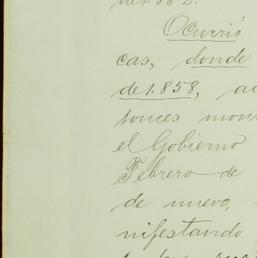 de 1.862.
Ocurrió
cas, donde
de 1.858, a
tonces mon
el Gobierno
Febrero de
de nuevo,
nifestando